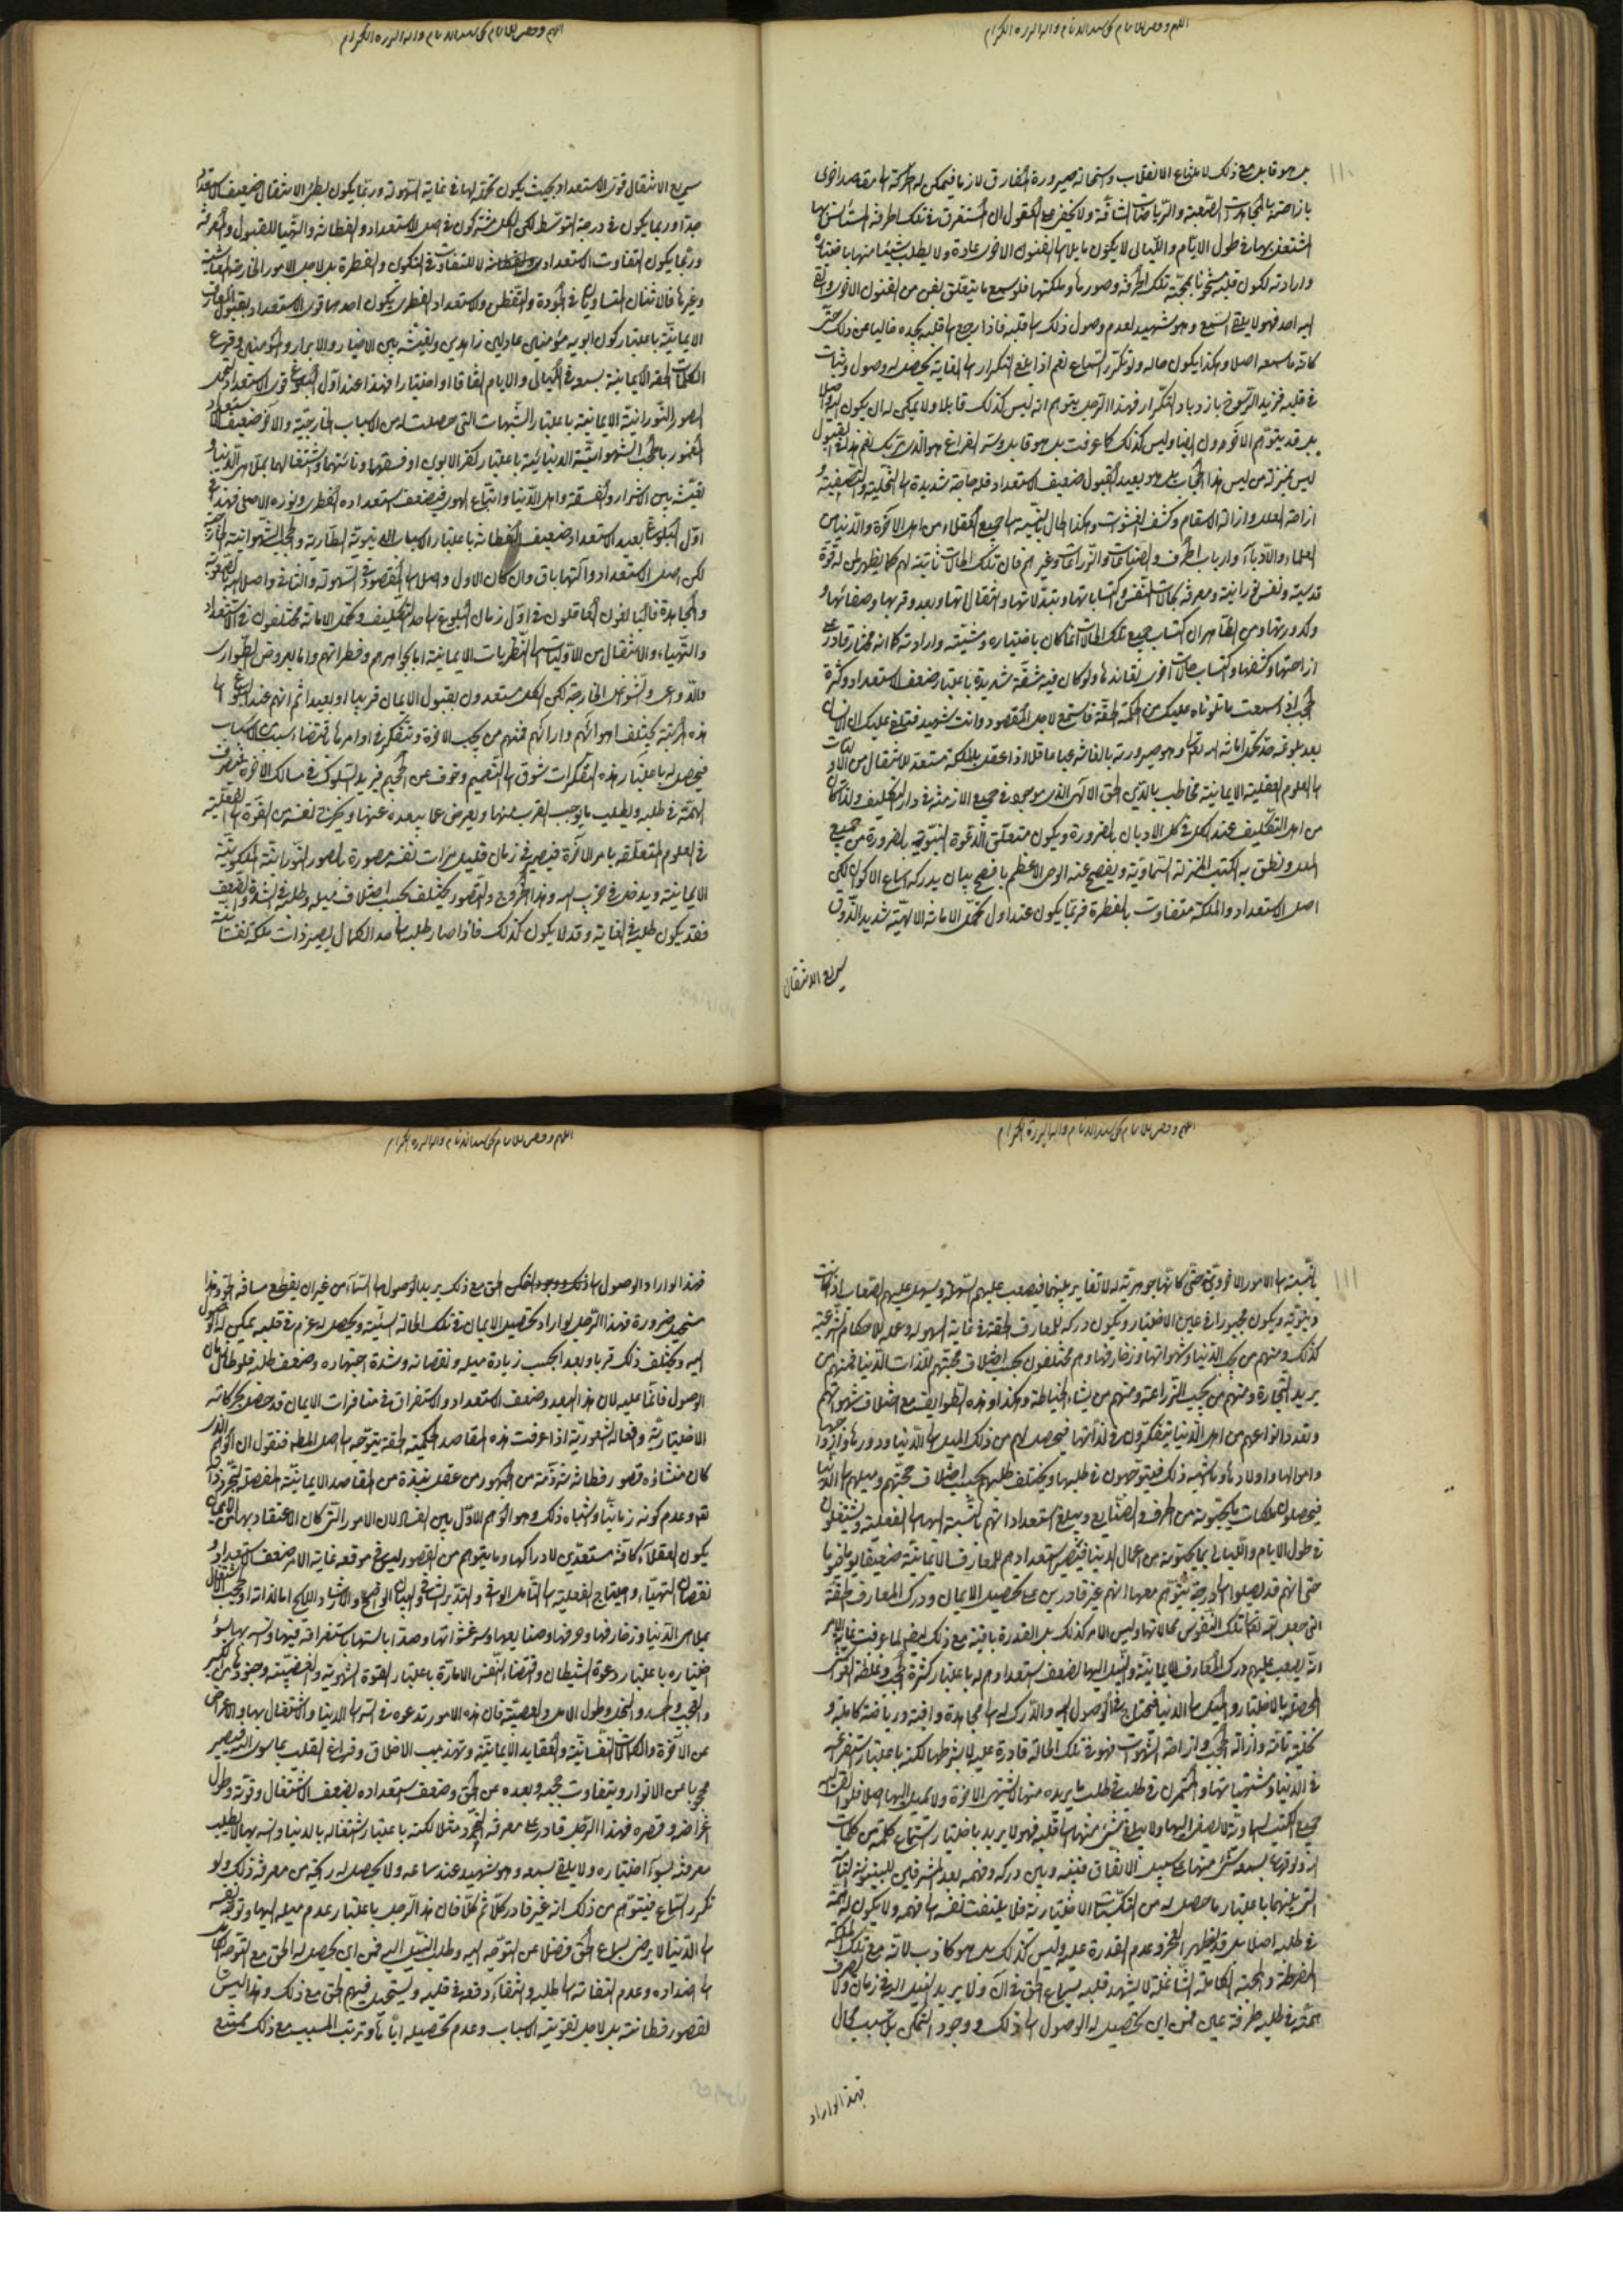 ١١٠
بل هو قابل مع ذلك لامتناع الانقلاب واستحالة صيرورة المفارق لازما فيمكن له الحركة الى مقصد اخرى
بازاحتها بالمجاهدات الصعبة والرياضات الشاقة ولا يخفى على العقول ان المستغرق في تلك الحرفة
اشتغل بها في طول الايام والليالي لا يكون مايلا الى الفنون الاخرى عادة ولا يطلب شيئا منها باختياره
وارادته لكون قلبه مشحونا بمحبة تلك الحرفة وصورها وملكتها فلو سمع ما يتعلق بفن من الفنون الاخرى
اليه احد فهو لا يلقى السمع وهو شهيد لعدم وصول ذلك الى قلبه فاذا رجع الى قلبه يجده خاليا عن ذلك حتى
كانه ما سمعه اصلا وهكذا يكون حاله ولو تكرر السماع نعم اذا بلغ التكرار الى الغاية يحصل له وصول وثبات
في قلبه فيزيد الرسوخ بازدياد التكرار فهذا الرجل يتوهم انه ليس كذلك قابلا ولا يمكن له ان يكون
بل قد يتوهم الاخرون ايضا وليس كذلك كما عرفت بل هو قابل
ليس بمنزلة من ليس هذا الحجاب له وبعيد القبول ضعيف الاستعداد فله حاجة شديدة الى التخلية والتصفية
ازاحة العلل وازالة الاسقام وكشف الغشوات وهكذا الحال بالنسبة الى جميع العقلاء من اهل الاخرة والدنيا من
العلماء والادباء وارباب الحرف والصناعات والزراعات وغيرهم فان تلك الحالات ثابتة لهم كما يظهر لمن له قوة
قدسية ونفس نورانية ومعرفة بحالات النفس واكتساباتها وتبدلاتها وانتقالاتها وبعدها وقربها وصفائها
وكدورتها ومن الظاهر ان اكتساب جميع تلك الحالات انما كان باختياره ومشيته وارادته كما انه مختار قادر على
ازاحتها وكشفها واكتساب حالات اخرى نقايضها ولو كان فيه مشقة شديدة باعتبار ضعف الاستعداد وكثرة
الحجب اذا سمعت ما تلوناه عليك من الحكمة الحقة فاستمع لاصل المقصود وانت شهيد فنتلو عليك ان الانسان
بعد بلوغه حد تحمل امانة الله تعالى وهو صيرورته بالغا شرعيا عاقلا اذا عقل بالملكة مستعد للانتقال من الاوليات
الى العلوم العقلية الايمانية مخاطب بالدين الحق الالهي الذي هو موجود في جميع الازمنة في دار التكليف
من اهل التكليف عند الكل في كل الاديان بالضرورة ويكون متعلق الدعوة النبوية بالضرورة من جميع
الملل ونطق به الكتب المنزلة السماوية ويفصح عنه الوحي الاعظم بافصح بيان يدركه اسماع الاكوان لكن
اصل الاستعداد والملكة متفاوت بالفطرة فربما يكون عند اول تحمل الامانة الالهية شديد الذوق
سريع الانتقال
سريع الانتقال قوى الاستعداد بحيث يكون تحمله لها في غاية السهولة وربما يكون بطئ الانتقال ضعيف الاستعداد
جدا وربما يكون في درجة التوسط لكن الكل مشتركون في اصل الاستعداد والفطانة والتهيأ للقبول والحركة
وربما يكون التفاوت الاستعدادى لا للتفاوت في التكون والفطرة بل لاجل الامور الخارجة
وغيرها فالاثنان المتساويان في الجودة والتفطن والاستعداد الفطرى يكون احدهما قوى الاستعداد بقبول المعارف
الايمانية باعتبار كون ابويه مؤمنين عادلين زاهدين وتعيشه بين الاخيار والابرار والمؤمنين وقرع
الكلمات الحقة الايمانية بسمعه في الليالي والايام اتفاقا او اختيارا فهذا عند اول البلوغ قوى الاستعداد لتحمل
الصور النورانية الايمانية باعتبار الشبهات التي حصلت له من الاسباب الخارجية والاخر ضعيف الاستعداد
المغمور بالحجب الشهوانية الدنيائية باعتبار كفر الابوين او فسقهما وتأنسهما واشتغالهما بملاهى الدنيا و
تعيشه بين الاشرار والفسقة واهل الدنيا واتباع الهوى فيضعف استعداده الفطرى ونوره الاصلى فهذا في
اول البلوغ بعيد الاستعداد ضعيف الفطانة باعتبار الاسباب الدنيوية الطارية والحجب الشهوانية الخارجية
لكن اصل الاستعداد والتهيأ باق وان كان الاول واصلا الى المقصود في السهولة والثاني واصلا اليه بالصعوبة
والمجاهدة فالبالغون العاقلون في اول زمان البلوغ الى حد التكليف وتحمل الامانة مختلفون في الاستعداد
والتهيأ والانتقال من الاوليات الى النظريات الايمانية اما بجواهرهم وفطراتهم واما بعروض الطوارى
والدواعى والشواغل الخارجة لكن الكل مستعدون بقبول الايمان قريبا او بعيدا ثم انهم عند البلوغ الى
هذه المرتبة يختلف اهوائهم وارائهم فمنهم من يحب الاخرة ويتفكر في اوامرها باقتضاء سبب من الاسباب
فيحصل له باعتبار هذه التفكرات شوق الى النعيم وخوف عن الجحيم فيريد السلوك في مسالك الاخرة فيصرف
الهمة في طلبه ويطلب ما يوجب القرب منها ويعرض عما يبعده عنها ويخرج نفسه من القوة الى الفعلية
في العلوم المتعلقة بامر الاخرة فيصير في زمان قليل مرات نفسه مصورة بالصور النورانية الملكوتية
الايمانية ويدخل في حزب الله وهذا الخروج والتصور يختلف بحسب اختلاف ميله وطلبه في الشدة والضعف
فقد يكون طلبه في الغاية وقد لا يكون كذلك فاذا صار طلبه الى حد الكمال يصير ذات ملكة نفسانية
١١١
بالنسبة الى الامور الاخروية حتى كانها جوهرية له لا تغاير بينهما فيصعب عليهم السهلة ويسهل عليهم الصعاب
دنيوية ويكون مجبورا في عين الاختيار ويكون دركه للمعارف الحقة في غاية السهولة وعمله للاحكام الشرعية
كذلك ومنهم من يحب الدنيا وشهواتها وزخارفها وهم مختلفون بحسب اختلاف محبتهم للذات الدنيا فمنهم من
يريد التجارة ومنهم من يحب الزراعة ومنهم من يشاء الخياطة وهكذا وهذه الطوايف مع اختلاف شهواتهم
وتعدد انواعهم من اهل الدنيا يتفكرون في لذاتها فيحصل لهم من ذلك الميل الى الدنيا ودورها وازواجها
واموالها واولادها وما شبه ذلك فيتوجهون في طلبها ويختلف طلبهم بحسب اختلاف محبتهم وميلهم الى الدنيا
فيحصلون ملكات ما يحبونه من الحرف والصنايع ويبلغ استعداداتهم بالنسبة اليها الى الفعلية ويشتغلون
في طول الايام والليالي بما يحبونه من اعمال الدنيا فيصير استعدادهم للمعارف الايمانية ضعيفا يوما فيوما
حتى انهم قد يصلوا الى درجة يتوهم معها انهم غير قادرين على تحصيل الايمان ودرك المعارف الحقة
التي جعل الله تعالى تلك النفوس محالاتها وليس الامر كذلك بل القدرة باقية مع ذلك ايضا لما عرفت غاية الامر
انه يصعب عليهم درك المعارف الايمانية والنيل اليها لضعف استعدادهم له باعتبار كثرة الحجب وغلظة الغواشى
الحاصلة بالاختيار والميل الى الدنيا فيحتاج في الوصول اليه والدرك له الى مجاهدة وافية ورياضة كاملة و
تخلية تامة وازالة الحجب وازاحة الشهوات فهو في تلك الحالة قادرة عليه بشروطها لكنه باعتبار استغراقه
في الدنيا ومشتهياتها وانهماك في طلبه في طلب ما يريده منها لا يشتهى الاخرة ولا يميل اليها اصلا فلو
جميع الكتب السماوية لا يصغى اليها ولا يبلغ شئ منها الى قلبه فهو لا يريد باختيار استماع كلمة من كلمات
الله ولو قرع بسمعه شئ منها على سبيل الاتفاق فبينه وبين دركه وفهمه بعد المشرقين للبينونة التامة
التي بينهما باعتبار ما حصل له من المكتسبات الاختيارية فلا يلتفت نفسه الى فهمه ولا يكون له همة
في طلبه اصلا بل قد يظهر العجز وعدم القدرة عليه وليس كذلك بل هو كاذب لانه مع تلك الملكة
المفرطة والمحبة الكاملة الشاغلة لا يشهد قلبه بسماع الحق في ان ولا يريد النيل اليه في زمان ولا يصرف
همته في طلبه طرفة عين فمن اين يحصل له الوصول الى ذلك ووجود التمكن بلا سبب محال
فهذا لو اراد
فهذا لو اراد الوصول الى ذلك ووجود التمكن الحق مع ذلك يريد الوصول الى السماء من غير ان يقطع مسافة الجو وهذا
مستحيل ضرورة فهذا الرجل لو اراد تحصيل الايمان في تلك الحالة السيئة ويحصل له عزم في قلبه يمكن له الوصول
اليه ويختلف ذلك قربا وبعدا بحسب زيادة ميله ونقصانه وشدة اجتهاده وضعف طلبه فلو طال زمان
الوصول فانما عليه لان هذا البعد وضعف الاستعداد والاستغراق في منافرات الايمان قد حصل بحركاته
الاختيارية وافعاله الشعورية اذا عرفت هذه المقاصد الحكمية الحقة يتوجه الى اصل المط فنقول ان الوهم الذى
كان منشاؤه قصور فطانة شرذمة من الجمهور من عقل نبذة من المقاصد الايمانية المفصلة لتجرد ذات
الله وعدم كونه زمانيا واشباه ذلك وهو الوهم الاول بين الفساد لان الامور التي كان الاعتقاد بها من الايمان
يكون العقلاء كافة مستعدين لادراكها وما يتوهم من القصور ليس في موقعه غاية الامر ضعف الاستعداد و
نقصان التهيأ واحتياج الفعلية الى التأمل الوافى والتدبر الشافى والبيان الواضح والارشاد اللايح اما لذاته او بحسب الاشتغال
بملاهى الدنيا وزخارفها وحرفها وصنايعها وسرغشواتها وصدا بالستها باستغراقه فيها وانسه بها بسوء
اختياره باعتبار دعوة الشيطان واقتضاء النفس الامارة باعتبار القوة الشهوية والغضبية وجنودها من الكبر
والعجب والحسد والبخل وطول الامل والعصبية فان هذه الامور تدعوه في السر الى الدنيا والاشتغال بها والاعراض
عن الاخرة والكمالات النفسانية والعقايد الايمانية وتهذيب الاخلاق وفراغ القلب عما سوى الله فيصير
محجوبا عن الانوار ويتفاوت حجبه وبعده عن الحق وضعف استعداده بضعف الاشتغال وقوته وطول
اغراضه وقصره فهذا الرجل قادر على معرفة التجرد مثلا لكنه باعتبار اشتغاله بالدنيا وانسه بها لا يطلب
معرفته بسوء اختياره ولا يلقى سمعه وهو شهيد عند سماعه ولا يحصل له ركيه من معرفة ذلك ولو
تكرر السماع فيتوهم من ذلك انه غير قادر كلا ثم كلا فان هذا الرجل باعتبار عدم ميله اليها وتوجه نفسه
الى الدنيا لا يرضى بسماع الحق فضلا عن التوجه اليه وطلب النيل اليه فمن اين يحصل له الحق مع التوجه التام
الى اضداده وعدم التفاته الى طلبه وانتفاء دفعه في قلبه ويستحيل فيهم الحق مع ذلك وهذا ليس
لقصور فطانته بل لاجل تفويته الاسباب وعدم تحصيله اياها وترتب المسبب مع ذلك ممتنع